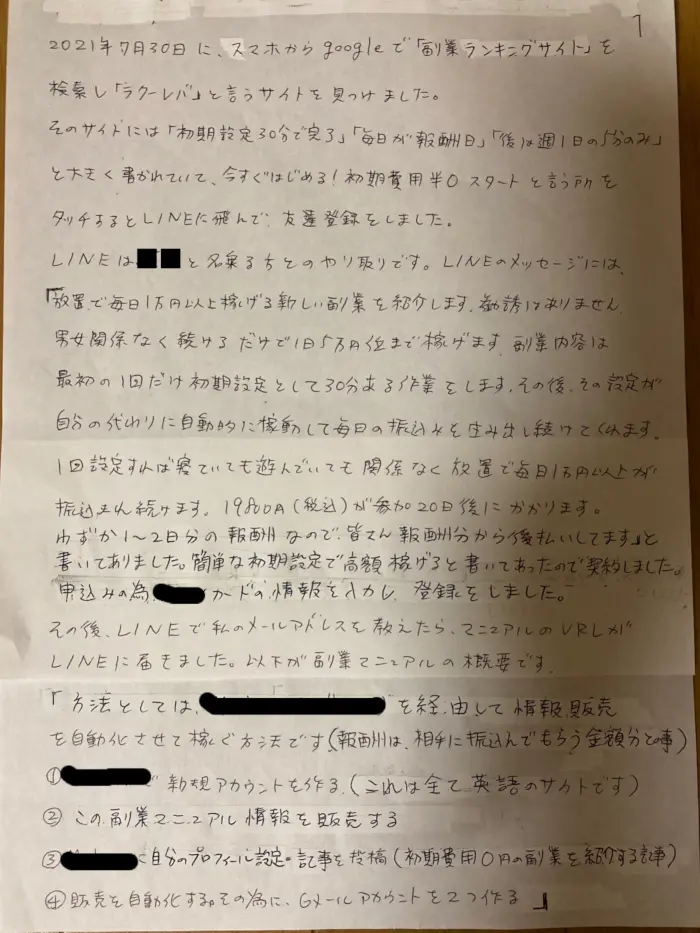 1
2021年7月30日に、スマホからgoogleで「副業ランキングサイト」を
検索し「ラクーレバ」と言うサイトを見つけました。
そのサイトには「初期設定30分で完了」「毎日が報酬日」「後は週1日の5分のみ」
と大きく書かれていて、今すぐはじめる!初期費用¥0スタートと言う所を
タッチするとLINEに飛んで、友達登録をしました。
LINEは と名乗る方とのやり取りです。LINEのメッセージには、
「放置で毎日1万円以上稼げる新しい副業を紹介します。勧誘はありません。
男女関係なく続けるだけで1日5万円位まで稼げます。副業内容は
最初の1回だけ初期設定として30分ある作業をします。その後、その設定が
自分の代わりに自動的に稼動して毎日の振込みを生み出し続けてくれます。
1回設定すれば寝ていても遊んでいても関係なく放置で毎日1万円以上が
振込まれ続けます。19800円(税込)が参加20日後にかかります。
わずか1~2日分の報酬なので、皆さん報酬分から後払いしてます」と
書いてありました。簡単な初期設定で高額稼げると書いてあったので契約しました。
申込みの為、 カードの情報を入力し、登録をしました。
その後、LINEで私のメールアドレスを教えたら、マニュアルのURLが
LINEに届きました。以下が副業マニュアルの概要です。
「方法としては、 を経由して情報販売
を自動化させて稼ぐ方法です(報酬は、相手に振込んでもらう金額分との事)
① で新規アカウントを作る。(これは全て英語のサイトです)
②この副業マニュアル情報を販売する
③ に自分のプロフィール設定・記事を投稿(初期費用0円の副業を紹介する記事)
④販売を自動化する。その為に、Gメールアカウントを2つ作る」